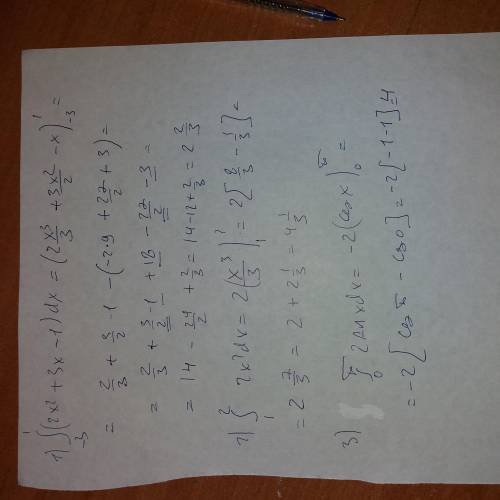 1) ∫₋₃¹ (2x² + 3x − 1) dx = (2x³/3 + 3x²/2 − x)₋₃¹ =
= 2/3 + 3/2 − 1 − (−2·9 + 27/2 + 3) =
= 2/3 + 3/2 − 1 + 18 − 27/2 − 3 =
= 14 − 24/2 + 2/3 = 14 − 12 + 2/3 = 2 2/3
2) ∫₁² 2x² dx = 2(x³/3)₁² = 2[8/3 − 1/3] =
= 2 7/3 = 2 + 2 1/3 = 4 1/3
3) ∫₀^π 2 sin x dx = −2(cos x)₀^π =
= −2[cos π − cos 0] = −2[−1−1] = 4